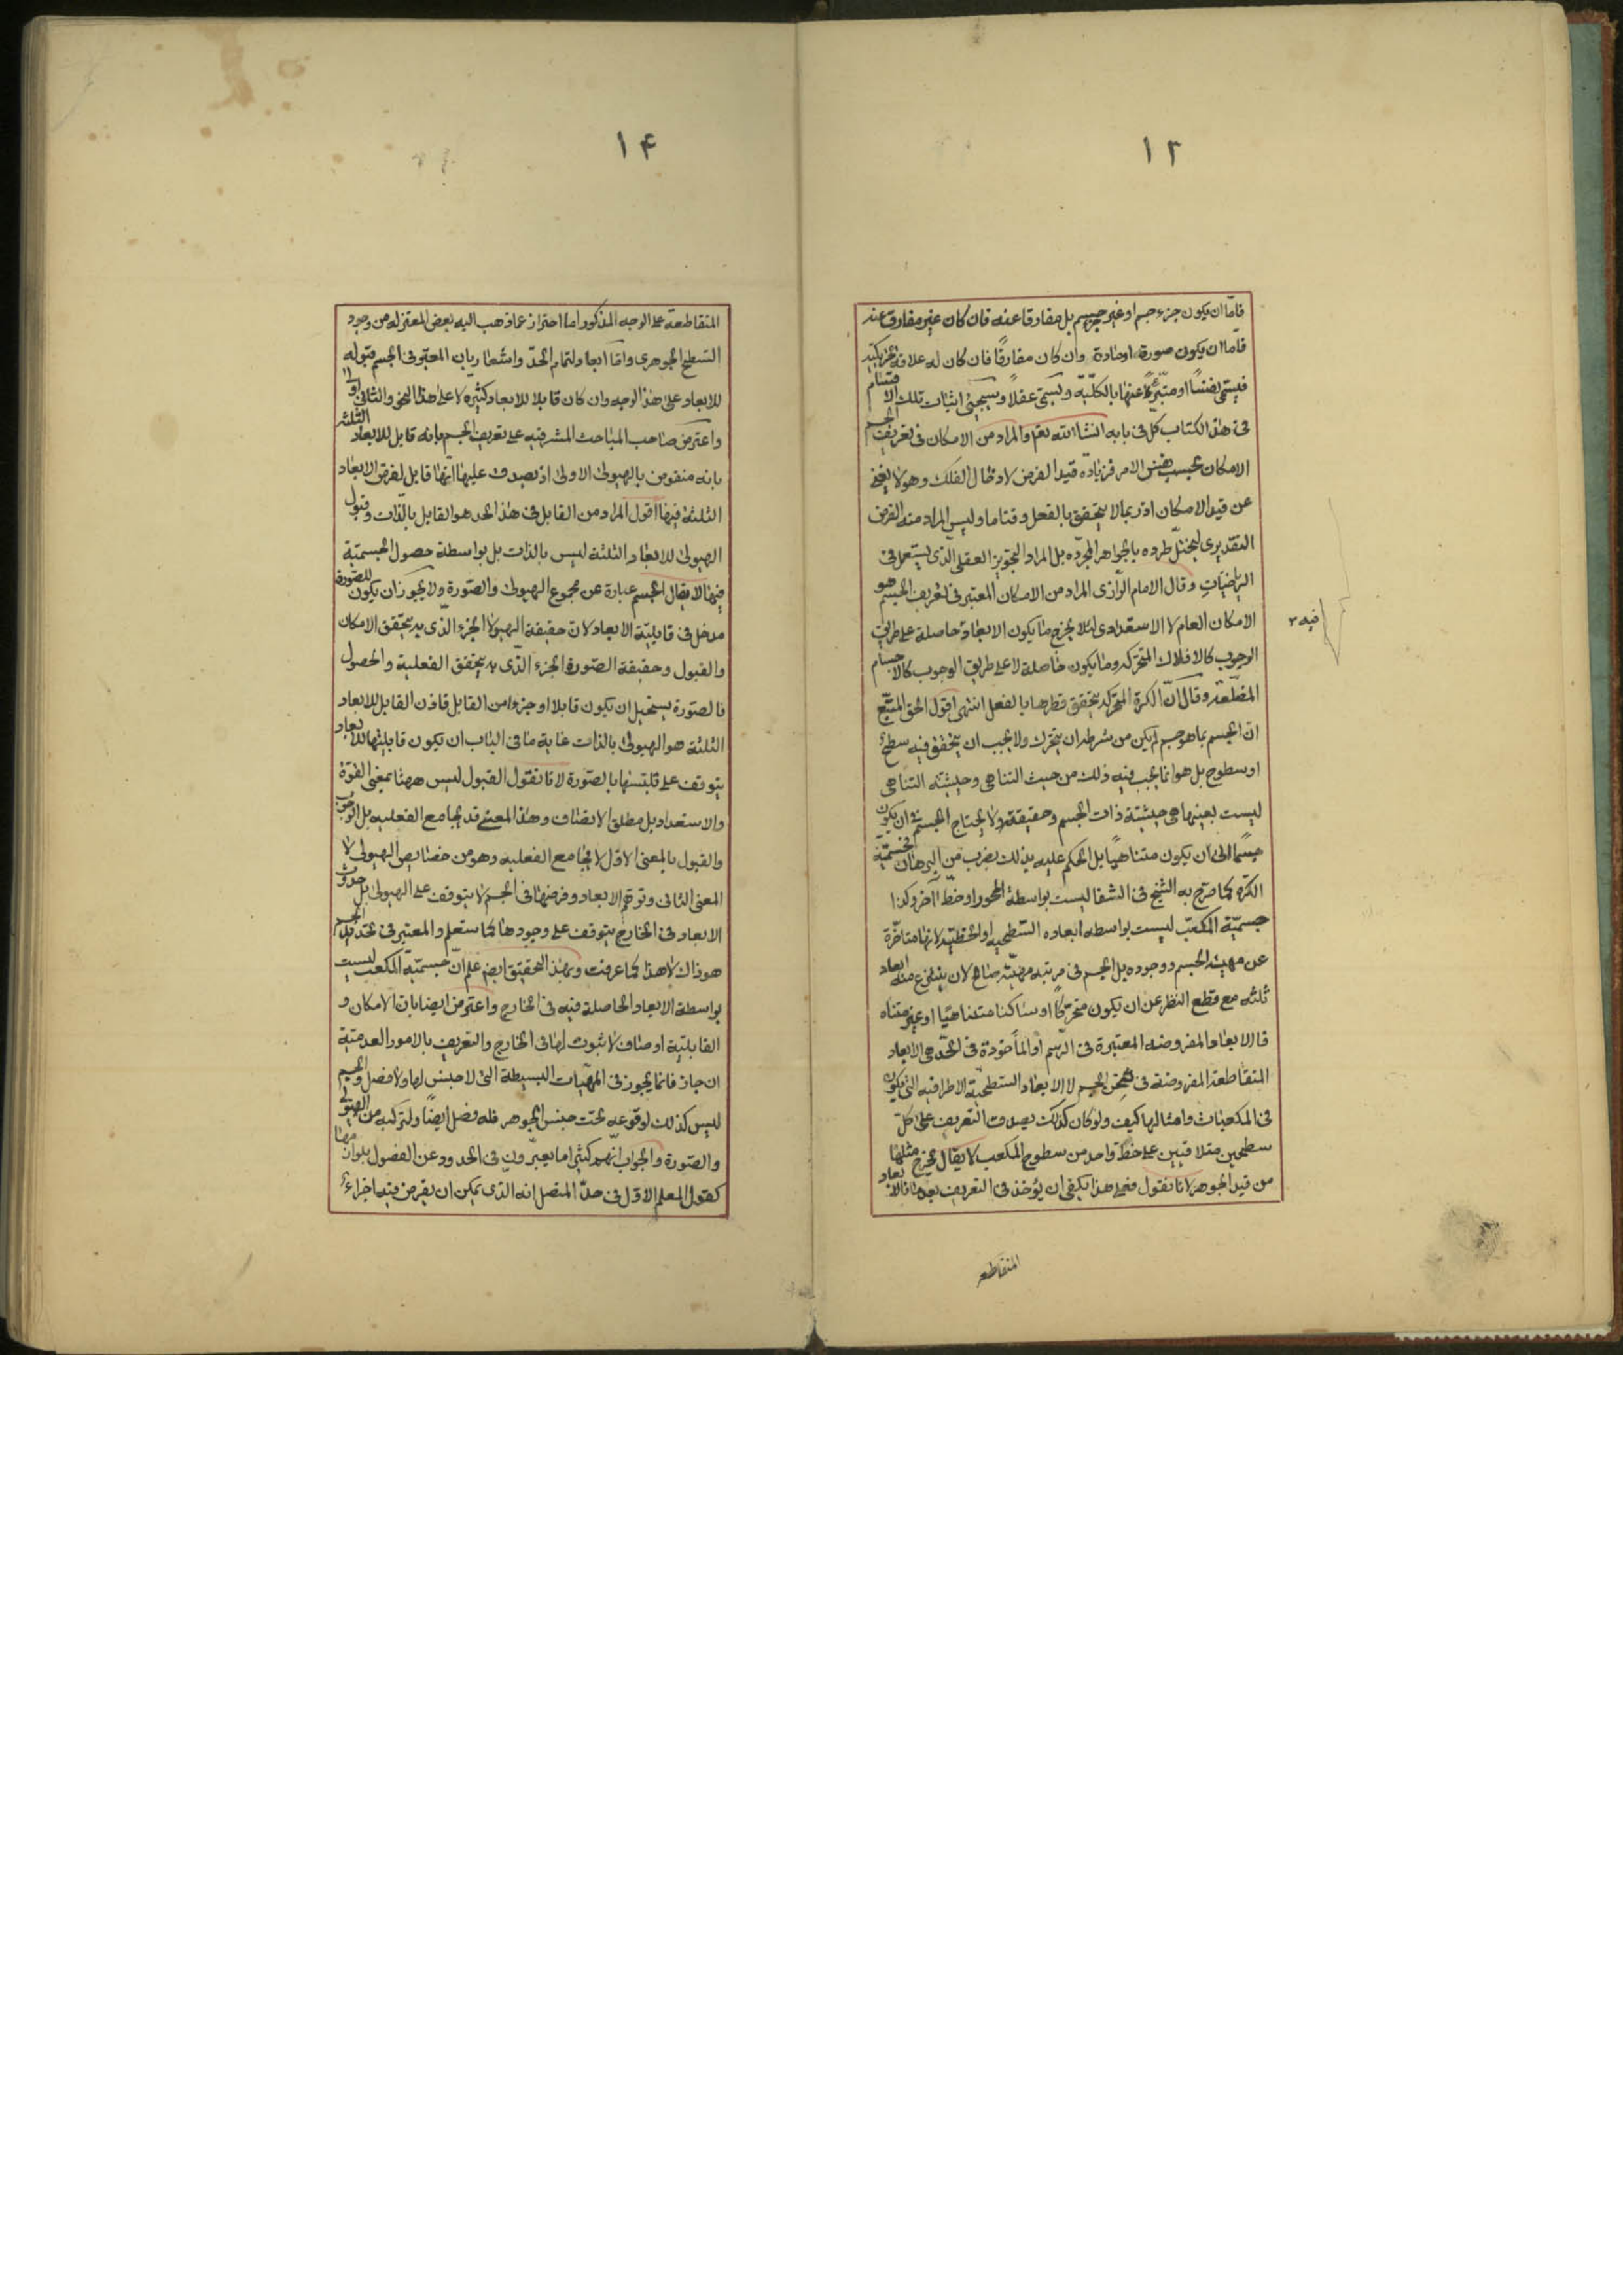 ١٣
فاما ان يكون جزء جسم او غير جزء جسم بل مفارقا عنه فان كان غير مفارق عنه
فاما ان يكون صورة او مادة وان كان مفارقًا فان كان له علاقة
فيسمى نفسًا او متبرئًا عنها بالكلّيّة ويسمى عقلاً وسيجيئ اثبات تلك الاقسام
فى هذا الكتاب كل فى بابه انشاالله تعم والمراد من الامكان فى تعريف الجسم
الامكان بحسب نفس الامر فزيادة قيد الفرض لادخال الفلك وهو لا يغنى
عن قيد الامكان اذ ربما لا يتحقق بالفعل وقتاما وليس المراد منه الفرض
التقديرى ليختل طرده بالجواهر المجرّده بل المراد التجويز العقلى الّذى يستعمل فى
الرياضيات وقال الامام الرّازى المراد من الامكان المعتبر فى تعريف الجسم هو
الامكان العام لا الاستعدادى لئلا يخرج ما يكون الابعاد حاصلة على طريق
الوجوب كالافلاك المتحركه وما يكون حاصلة لا على طريق الوجوب كالاجسام
المضلّعة وقال انّ الكرة المتحركه يتحقق قطرها بالفعل انتهى اقول الحق المتّبع
انّ الجسم بما هو جسم لم يكن من شرطه ان يتحرك ولا يجب ان يتحقق فيه سطح
او سطوح بل هو انما يجب فيه ذلك من حيث التناهى وحيثيته التناهى
ليست بعينها هى حيثيّة ذات الجسم وحقيقته ولا يحتاج الجسم فى ان يكون
جسمًا الى ان يكون متناهيًا بل الحكم عليه بذلك بضرب من البرهان فجسميّة
الكرة كما صرّح به الشيخ فى الشفا ليست بواسطة المحور او خطّ آخر وكذا
جسميّة المكعّب ليست بواسطه ابعاده السّطحيه او الخطيّه لانها متاخّرة
عن مهيّة الجسم ووجوده بل الجسم فى مرتبه مهيّته صالح لان ينتزع منه ابعاد
ثلثه مع قطع النظر عن ان يكون متحرّكًا او ساكنا متناهيًا او غير متناه
فالابعاد المفروضه المعتبرة فى الرّسم او المأخوذة فى الحّد هى الابعاد
المتقاطعة المفروضة فى ثخن الجسم لا الابعاد السّطحيّة الاطرافيه التى يكون
فى المكعبات وامثالها كيف ولو كان كذلك يصدق التعريف على كلّ
سطحين متلاقيين على خطّ واحد من سطوح المكعب لا يقال يخرج مثلها
من قيد الجوهر لانا نقول فعلى هذا يكفى ان يؤخذ فى التعريف الابعاد
المتقاطعة
فيه ٣
١۴
المتقاطعة على الوجه المذكور اما احتراز عما ذهب اليه بعض المعتزله من وجود
السّطح الجوهرى واما ولتمام الحدّ واشعار بان المعتبر فى الجسم قبوله
للابعاد على هذا الوجه وان كان قابلا للابعاد كثيرة لا على هذا النحو والثانى اولى
واعترض صاحب المباحث المشرقيه على تعريف الجسم بانه قابل للابعاد الثلثه
بانه منقوض بالهيولى الاولى اذ يصدق عليها انّها قابل لفرض الابعاد
الثلثة فيها اقول المراد من القابل فى هذا الحد هو القابل بالذّات وقبول
الهيولى للابعاد الثلثة ليس بالذات بل بواسطة حصول الجسميّة
فيها لا يقال الجسم عبارة عن مجموع الهيولى والصّورة ولا يجوز ان يكون للصّورة
مدخل فى قابليّة الابعاد لان حقيقة الهيولا الجزء الّذى به يتحقق الامكان
والقبول وحقيقة الصّورة الجزء الّذى به يتحقق الفعلية والحصول
فالصّورة يستحيل ان يكون قابلا او جزءا من القابل فاذن القابل للابعاد
الثلثة هو الهيولى بالذات غاية ما فى الباب ان يكون قابليتها للابعاد
يتوقف على تلبسها بالصّورة لانا نقول القبول ليس ههنا بمعنى القوّة
والاستعداد بل مطلق الاتصاف وهذا المعنى قد يجامع الفعليه بل الوجوب
والقبول بالمعنى الاوّل لا يجامع الفعليه وهو من خصايص الهيولى لا
المعنى الثانى وتوهّم الابعاد وفرضها فى الجسم لا يتوقف على الهيولى بل حدوث
الابعاد فى الخارج يتوقف على وجودها كما ستعلم والمعتبر فى تحديد الجسم
هو ذاك لا هذا كما عرفت وبهذا التحقيق ايض علم انّ جسميّة المكعب ليست
بواسطة الابعاد الحاصلة فيه فى الخارج واعترض ايضا بان الامكان و
القابليّة اوصاف لا ثبوت لها فى الخارج والتعريف بالامور العدميّة
ان جاز فانما يجوز فى المهيّات البسيطة التى لا جنس لها ولا فصل والجسم
ليس كذلك لوقوعه تحت جنس الجوهر فله فصل ايضًا ولتركبه من الهيولى
والصّورة والجواب انّهم كثيرا ما يعبّرون فى الحدود عن الفصول بلوازمها
كقول المعلم الاوّل فى حدّ المتصل انه الذى يمكن ان يفرض فيه اجزاء